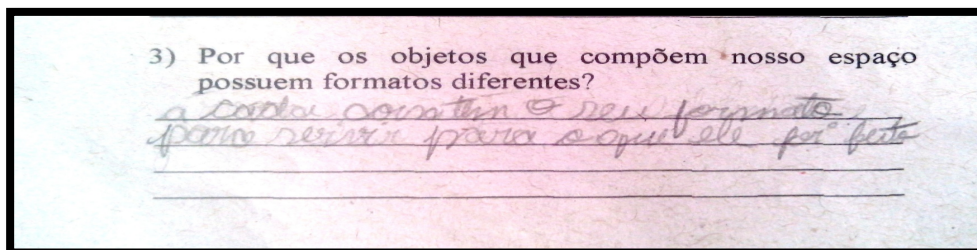 3) Por que os objetos que compõem nosso espaço
possuem formatos diferentes?
a contem o seu formato
para servir para o que ele foi feito